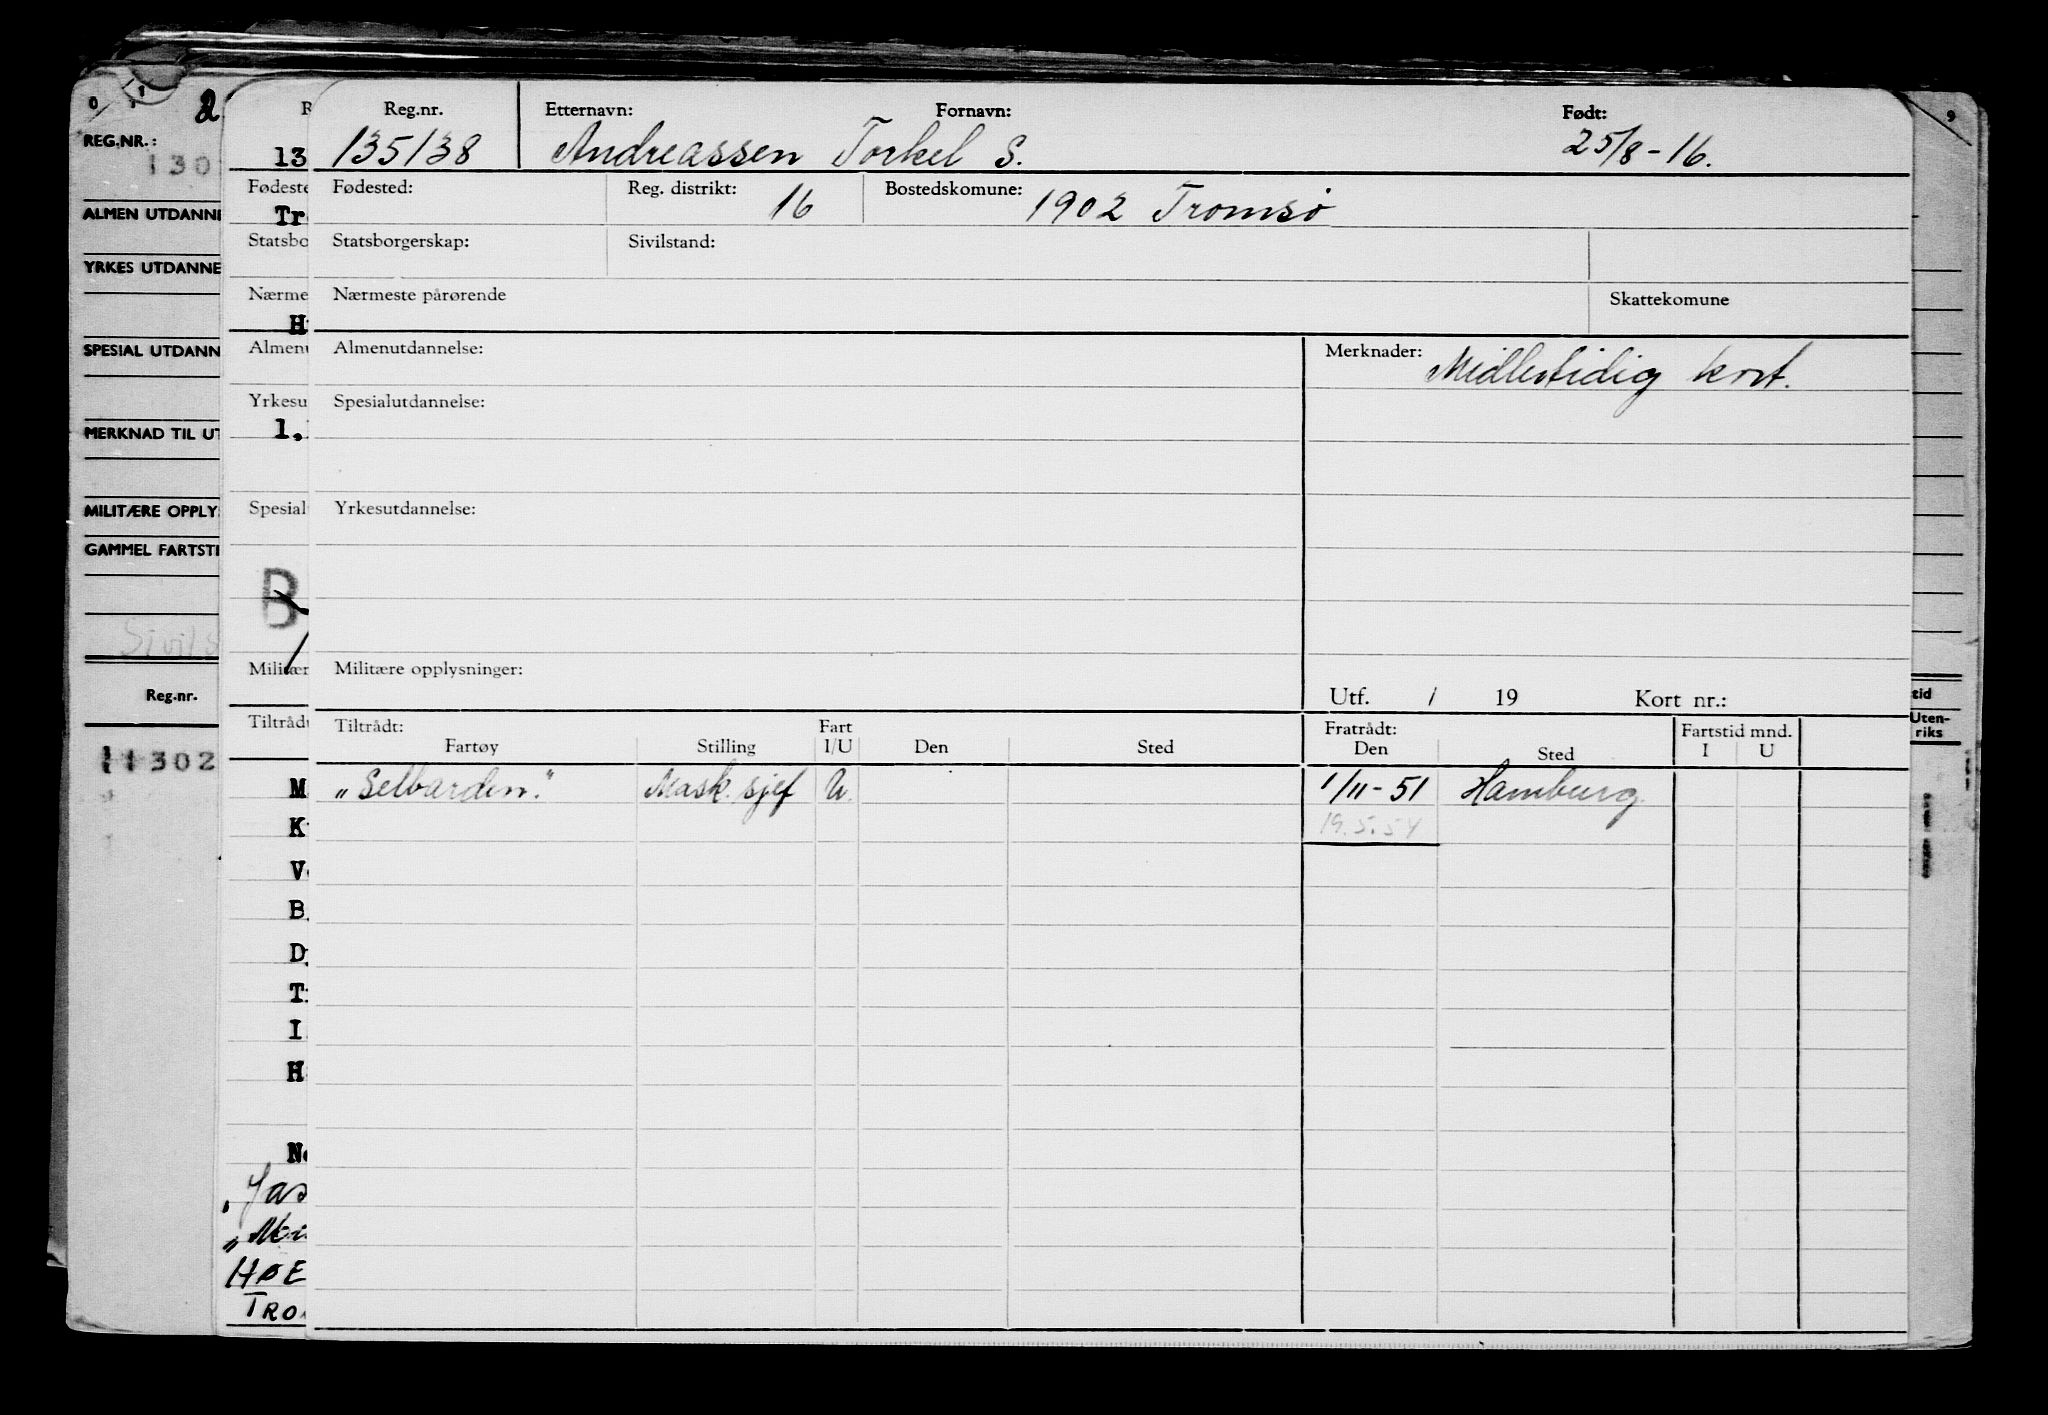 Reg.nr. Etternavn: Fornavn: Født:
135138 Andreassen Torkel S. 25/8-16.
Fødested: Reg. distrikt: 16 Bostedskomune: 1902 Tromsø
Statsborgerskap: Sivilstand:
Nærmeste pårørende Skattekomune
Almenutdannelse: Merknader: Midlertidig kort.
Spesialutdannelse:
Yrkesutdannelse:
Militære opplysninger:
Utf. / 19 Kort nr.:
Tiltrådt: Fart Fratrådt: Fartstid mnd.
Fartøy Stilling I/U Den Sted Den Sted I U
"Selbardin." Mask. sjef U. 1/11-51 Hamburg.
19.5.54
2
REG.NR.:
130
ALMEN UTDANNE
YRKES UTDANNE
SPESIAL UTDANN
MERKNAD TIL UT
MILITÆRE OPPLYS
GAMMEL FARTSTI
Sivils
Reg.nr.
11302
R
13
Fødeste
Tr
Statsbo
Nærme
H
Almenu
Yrkesu
1,
Spesial
B
Militær
Tiltråd
M
K
V
B
D
T
I
H
N
"Jas
"Mi
HØE
TRO
9
tid
Uten-
riks